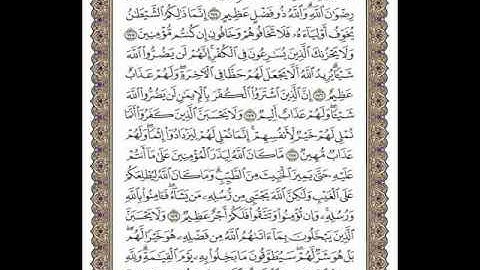 رِضْوَٰنَ ٱللَّهِ وَٱللَّهُ ذُو فَضْلٍ عَظِيمٍ ١٧٤ إِنَّمَا ذَٰلِكُمُ ٱلشَّيْطَٰنُ
يُخَوِّفُ أَوْلِيَآءَهُۥ فَلَا تَخَافُوهُمْ وَخَافُونِ إِن كُنتُم مُّؤْمِنِينَ ١٧٥
وَلَا يَحْزُنكَ ٱلَّذِينَ يُسَٰرِعُونَ فِى ٱلْكُفْرِ إِنَّهُمْ لَن يَضُرُّوا۟ ٱللَّهَ
شَيْـًٔا يُرِيدُ ٱللَّهُ أَلَّا يَجْعَلَ لَهُمْ حَظًّا فِى ٱلْءَاخِرَةِ وَلَهُمْ عَذَابٌ
عَظِيمٌ ١٧٦ إِنَّ ٱلَّذِينَ ٱشْتَرَوُا۟ ٱلْكُفْرَ بِٱلْإِيمَٰنِ لَن يَضُرُّوا۟ ٱللَّهَ
شَيْـًٔا وَلَهُمْ عَذَابٌ أَلِيمٌ ١٧٧ وَلَا يَحْسَبَنَّ ٱلَّذِينَ كَفَرُوٓا۟ أَنَّمَا
نُمْلِى لَهُمْ خَيْرٌ لِّأَنفُسِهِمْ إِنَّمَا نُمْلِى لَهُمْ لِيَزْدَادُوٓا۟ إِثْمًا وَلَهُمْ
عَذَابٌ مُّهِينٌ ١٧٨ مَّا كَانَ ٱللَّهُ لِيَذَرَ ٱلْمُؤْمِنِينَ عَلَىٰ مَآ أَنتُمْ
عَلَيْهِ حَتَّىٰ يَمِيزَ ٱلْخَبِيثَ مِنَ ٱلطَّيِّبِ وَمَا كَانَ ٱللَّهُ لِيُطْلِعَكُمْ
عَلَى ٱلْغَيْبِ وَلَٰكِنَّ ٱللَّهَ يَجْتَبِى مِن رُّسُلِهِۦ مَن يَشَآءُ فَـَٔامِنُوا۟ بِٱللَّهِ
وَرُسُلِهِۦ وَإِن تُؤْمِنُوا۟ وَتَتَّقُوا۟ فَلَكُمْ أَجْرٌ عَظِيمٌ ١٧٩ وَلَا يَحْسَبَنَّ
ٱلَّذِينَ يَبْخَلُونَ بِمَآ ءَاتَىٰهُمُ ٱللَّهُ مِن فَضْلِهِۦ هُوَ خَيْرًا لَّهُم
بَلْ هُوَ شَرٌّ لَّهُمْ سَيُطَوَّقُونَ مَا بَخِلُوا۟ بِهِۦ يَوْمَ ٱلْقِيَٰمَةِ وَلِلَّهِ